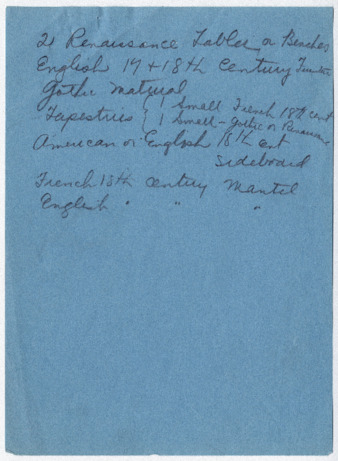 2 Renaissance Tables or Benches
English 17 + 18th Century
Gothic material
Tapestries { 1 Small French 18th cent
1 Small - Gothic or Renaissance
American or English 18th cent
Sideboard
French 18th century Mantel
English " " "